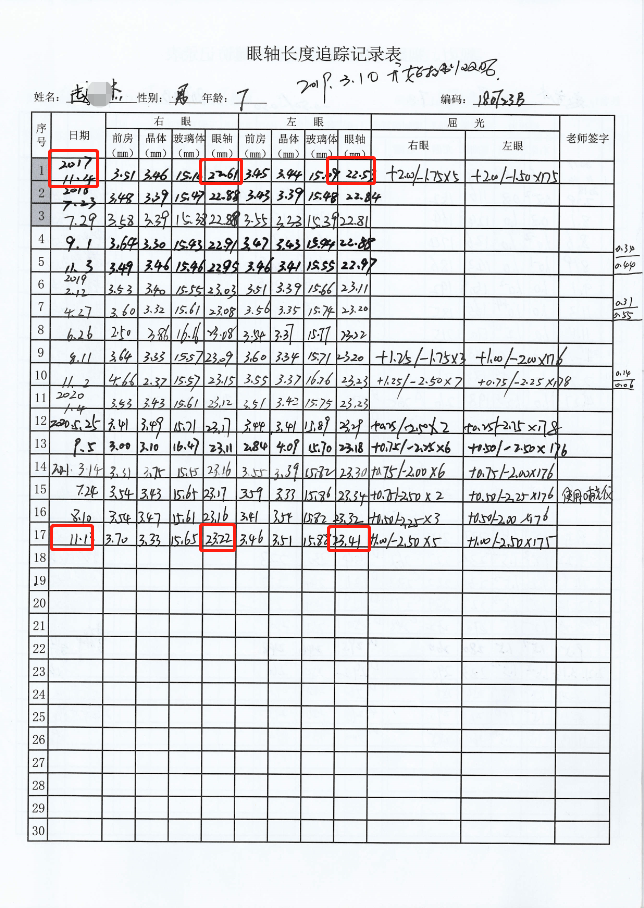 眼轴长度追踪记录表
2019.3.10
姓名： 性别：男 年龄：7 编码：180723号
序号 日期 右眼 左眼 屈光 老师签字
前房(mm) 晶体(mm) 玻璃体(mm) 眼轴(mm) 前房(mm) 晶体(mm) 玻璃体(mm) 眼轴(mm) 右眼 左眼
1 2017 11.4 3.51 3.46 22.61 3.45 3.44 22.53 +2.00/-1.75×5 +2.00/-1.50×175
2 2018 7.23 3.48 3.39 15.47 22.88 3.43 3.39 15.48 22.84
3 7.29 3.58 3.39 15.38 22.88 3.55 15.39 22.81
4 9.1 3.64 3.30 15.43 22.91 3.47 3.43 15.44 22.88
0.34
0.44
5 11.3 3.49 3.46 15.46 22.95 3.46 3.41 15.55 22.97
6 2019 2.12 3.53 3.40 15.55 23.03 3.51 3.39 15.66 23.11
7 4.27 3.60 3.32 15.61 23.08 3.56 3.35 15.74 23.20
0.31
0.55
8 6.26 2.50 3.86 16.16 23.08 3.54 3.37 15.77 23.22
9 9.11 3.64 3.33 15.57 23.09 3.60 3.34 15.71 23.20 +1.25/-1.75×3 +1.00/-2.00×176
10 11.2 4.66 2.37 15.57 23.15 3.55 3.37 16.26 23.23 +1.25/-2.50×7 +0.75/-2.25×178
0.14
0.06
11 2020 1.4 3.53 3.43 15.61 23.12 3.51 3.42 15.75 23.23
12 2020.5.25 3.41 3.49 15.71 23.17 3.44 3.41 15.89 23.29 +0.25/-2.50×2 +0.25/-2.75×178
13 9.5 3.00 3.10 16.47 23.11 2.84 4.09 15.70 23.18 +0.75/-2.25×6 +0.50/-2.50×176
14 2021.3.14 3.51 3.75 15.45 23.16 3.55 3.39 15.82 23.30 +0.75/-2.00×6 +0.75/-2.00×176
15 7.24 3.54 3.43 15.65 23.17 3.59 3.33 15.86 23.34 +0.75/-2.50×2 +0.50/-2.25×176
16 8.10 3.54 3.47 15.61 23.16 3.41 3.54 15.82 23.32 +0.50/-2.25×3 +0.50/-2.00×176
17 11.13 3.70 3.33 15.65 23.22 3.46 3.51 15.88 23.41 +1.00/-2.50×5 +1.00/-2.50×175
18
19
20
21
22
23
24
25
26
27
28
29
30